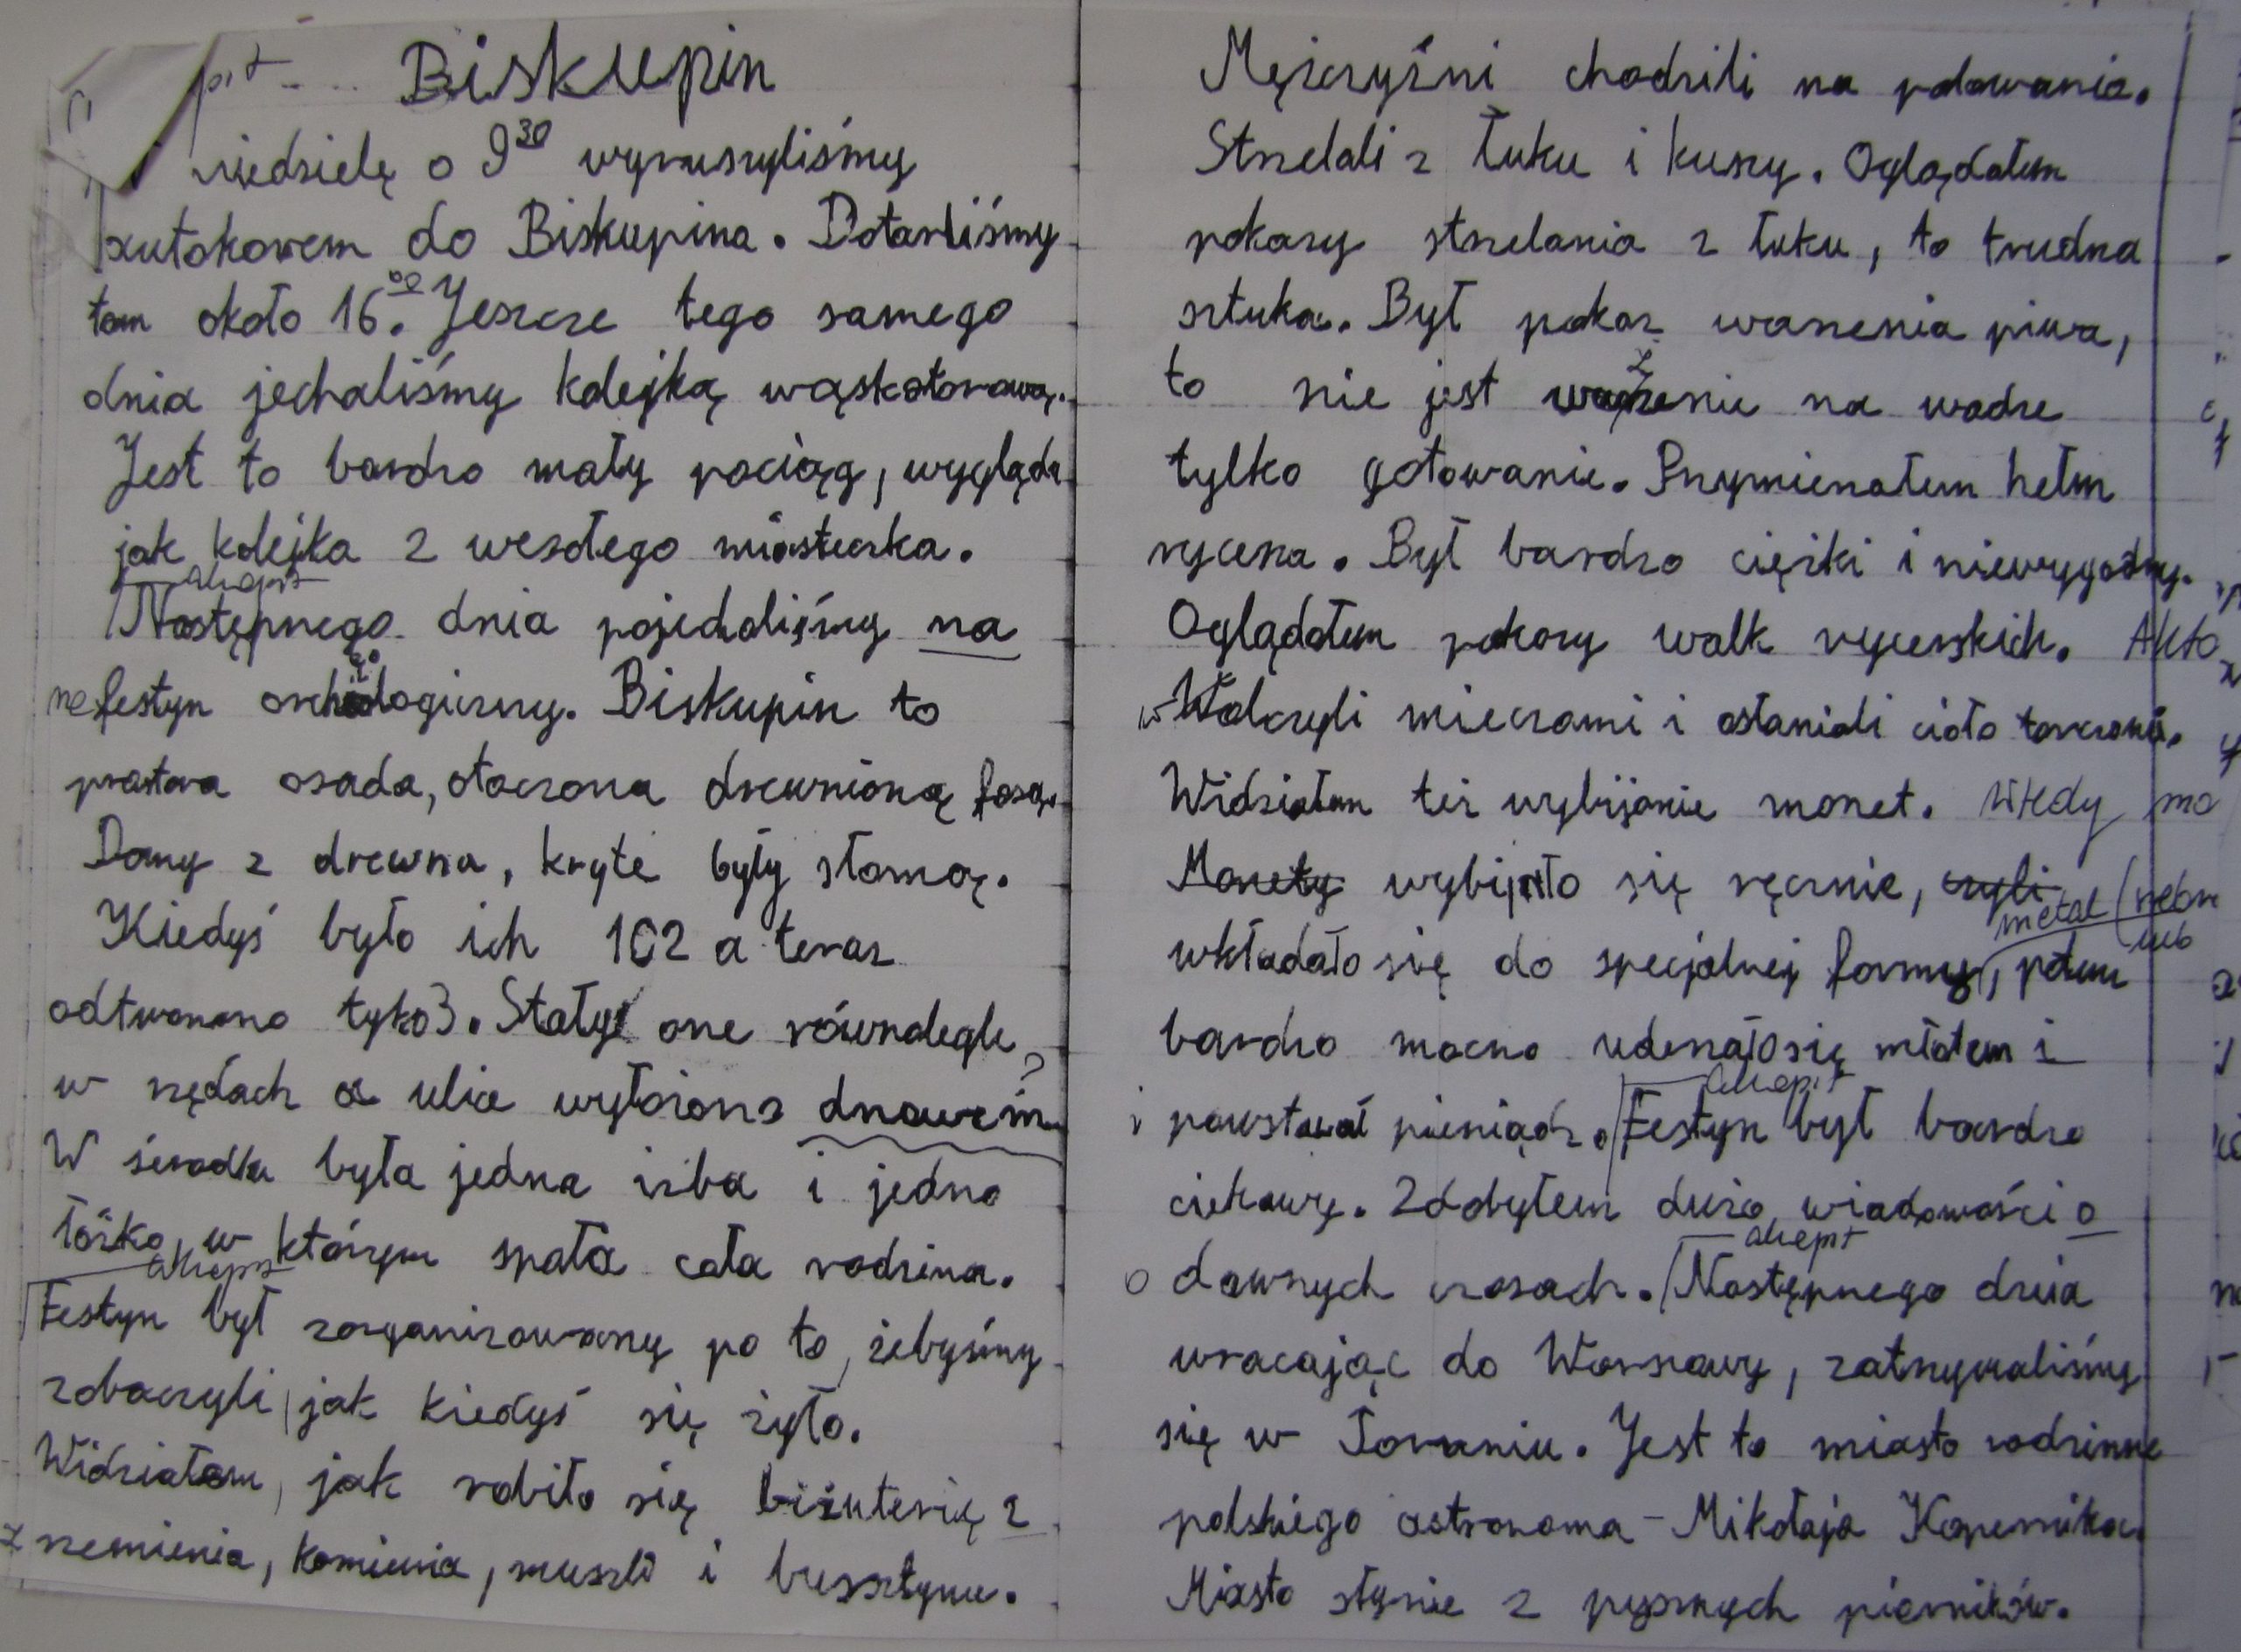 Biskupin
niedzielę o 9³⁰ wyruszyliśmy
autokarem do Biskupina. Dotarliśmy
tam około 16.⁰⁰ Jeszcze tego samego
dnia jechaliśmy kolejką wąskotorową.
Jest to bardzo mały pociąg, wygląda
jak kolejka z wesołego miasteczka.
akapit
Następnego dnia pojechaliśmy na
na festyn archeologiczny. Biskupin to
prastara osada, otoczona drewnianą fosą.
Domy z drewna, kryte były słomą.
Kiedyś było ich 102 a teraz
odtworzono tyko 3. Stały one równolegle
w rzędach a ulice wyłożono drzewem ?
W środku była jedna izba i jedno
łóżko, w którym spała cała rodzina.
akapit
Festyn był zorganizowany po to, żebyśmy
zobaczyli, jak kiedyś się żyło.
Widziałem, jak robiło się biżuterię z
z rzemienia, kamienia, muszli i bursztynu.
Mężczyźni chodzili na polowania.
Strzelali z łuku i kuszy. Oglądałem
pokazy strzelania z łuku, to trudna
sztuka. Był pokaz warzenia piwa,
to nie jest ważenie na wadze
tylko gotowanie. Przymierzałem hełm
rycerza. Był bardzo ciężki i niewygodny.
Oglądałem pokazy walk rycerskich.
Walczyli mieczami i osłaniali ciało tarczami.
Widziałem też wybijanie monet. Wtedy mo
Monety wybijało się ręcznie, czyli
metal
lub
wkładało się do specjalnej formy, potem
bardzo mocno uderzało się młotem i
akapit
i powstawał pieniądz. Festyn był bardzo
ciekawy. Zdobyłem dużo wiadomości o
akapit
o dawnych czasach. Następnego dnia
wracając do Warszawy, zatrzymaliśmy
się w Toruniu. Jest to miasto rodzinne
polskiego astronoma - Mikołaja Kopernika.
Miasto słynie z pysznych pierników.